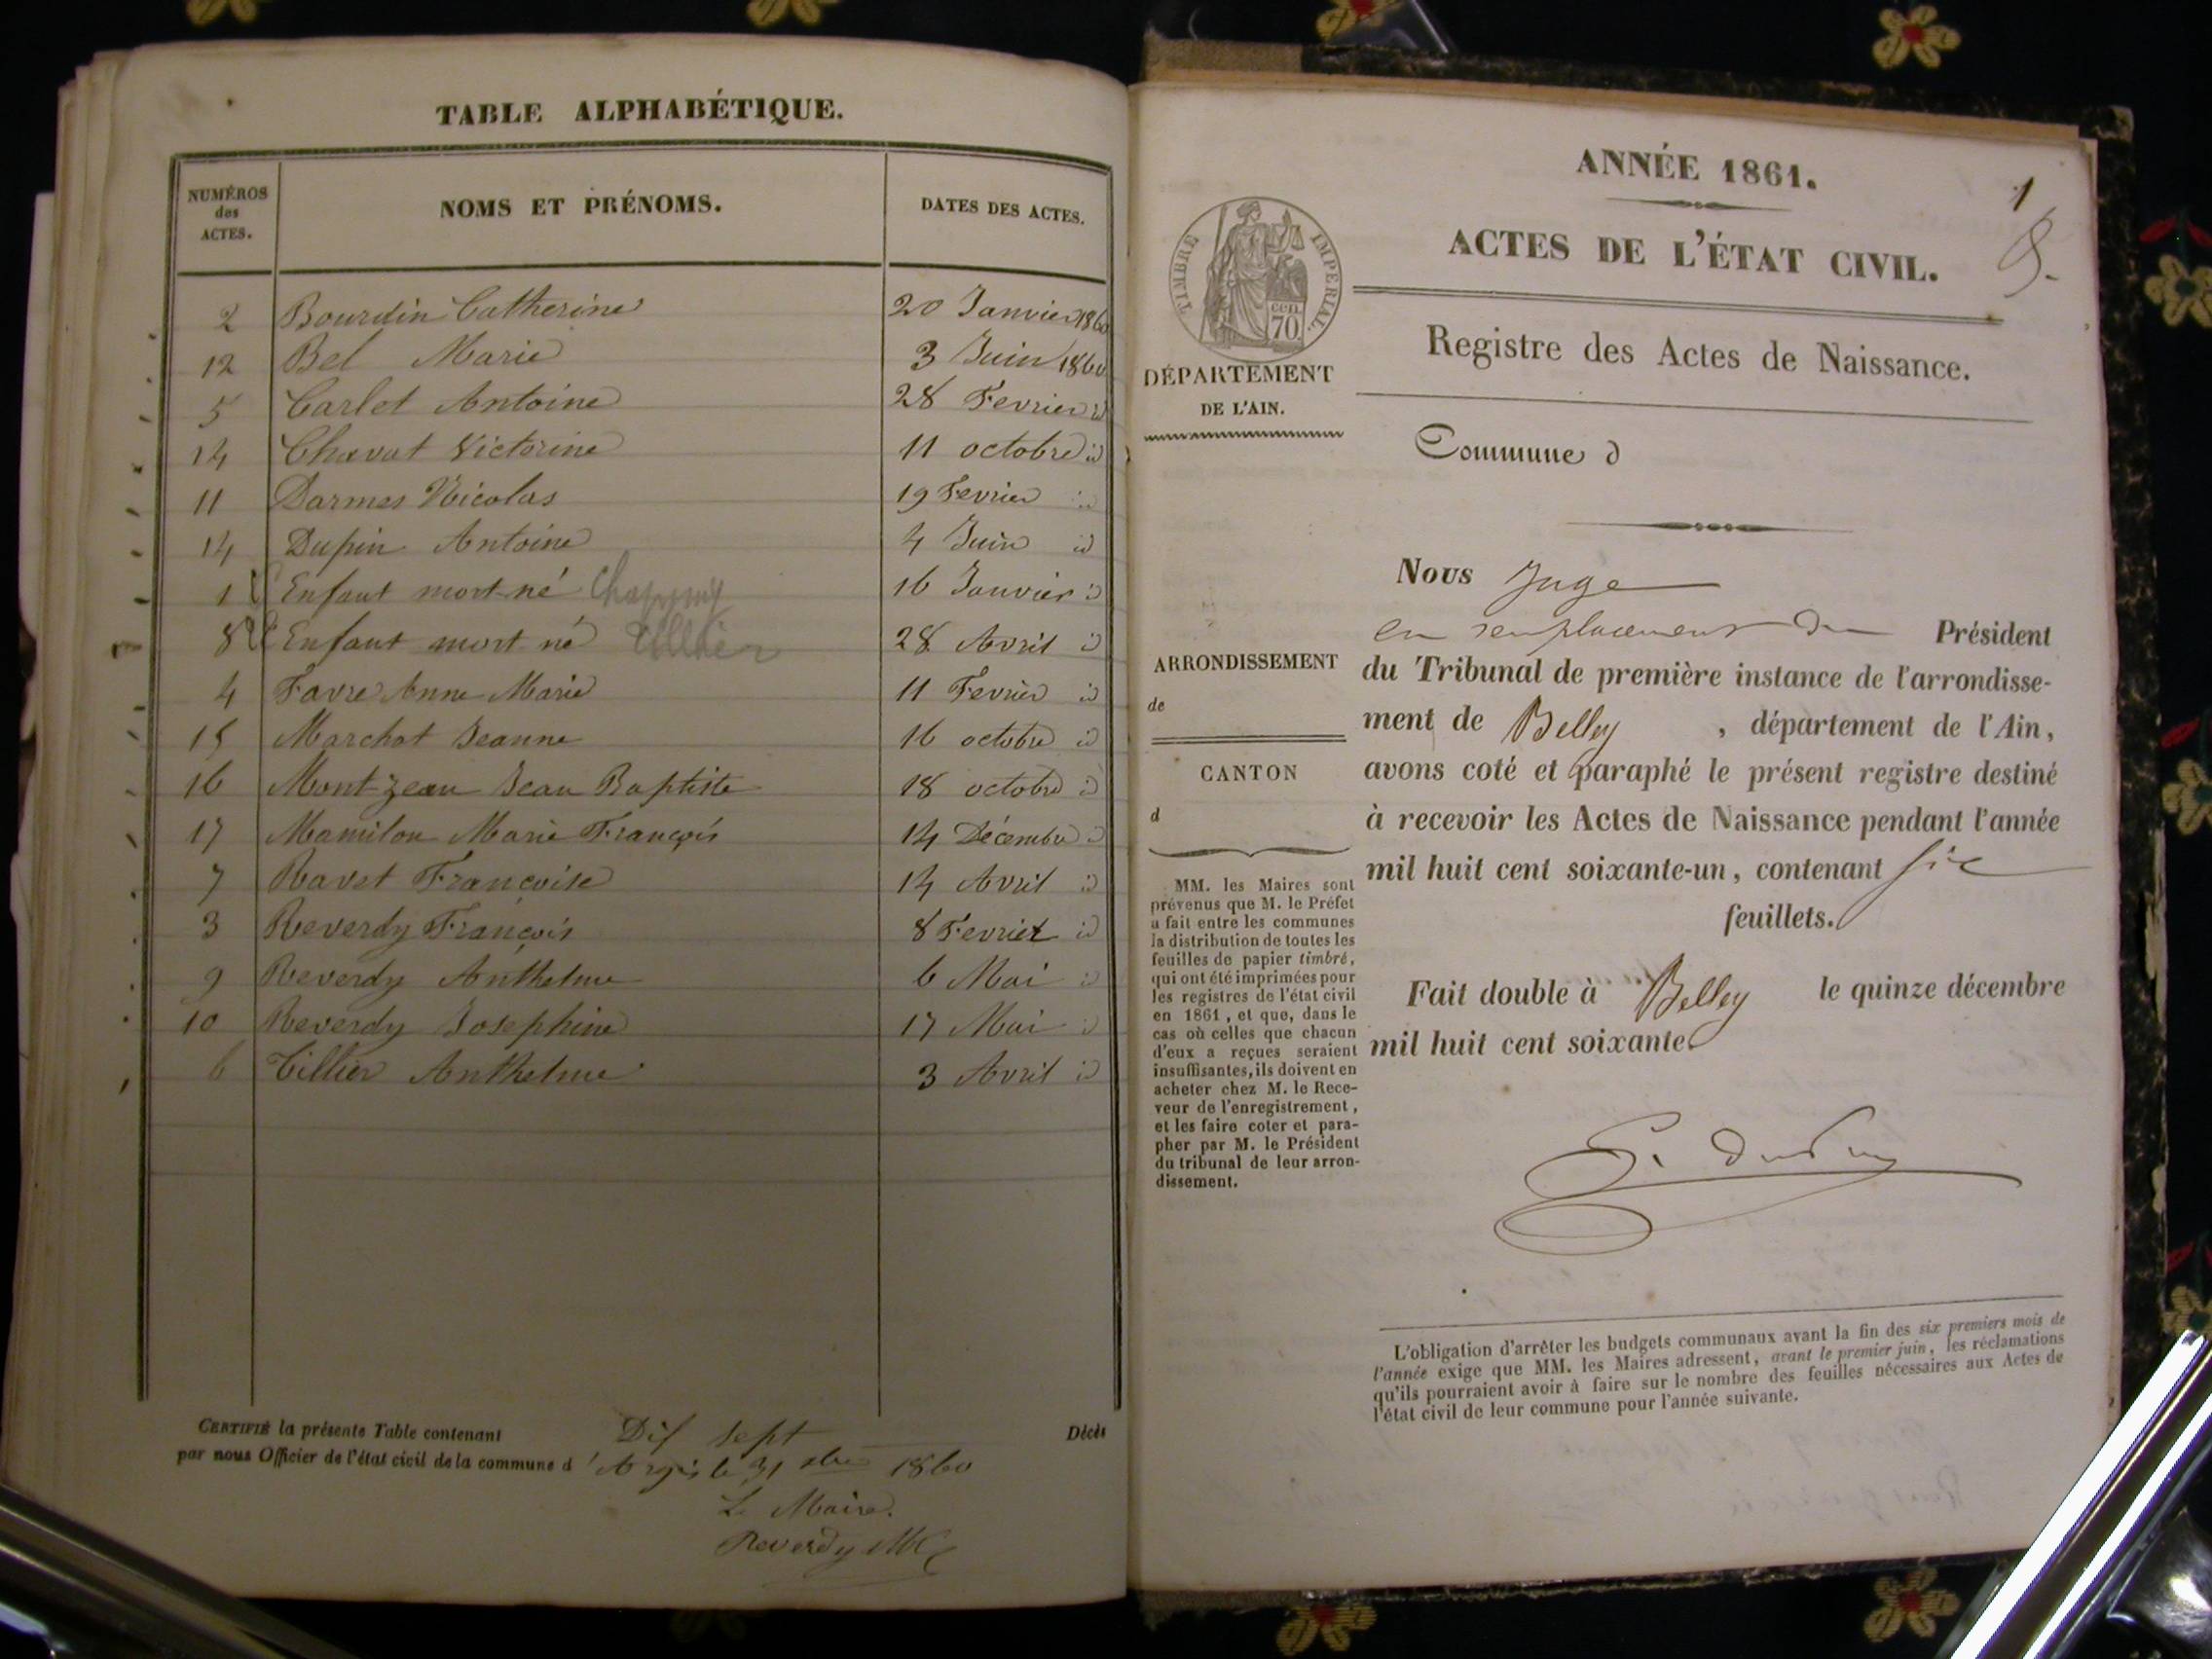 TABLE ALPHABÉTIQUE.
NUMÉROS des ACTES. NOMS ET PRÉNOMS. DATES DES ACTES.
2 Bourdin Catherine 20 Janvier 1860
12 Bel Marie 3 Juin 1860
5 Carlet Antoine 28 Fevrier id
14 Chavat Victorine 11 octobre id
11 Darmes Nicolas 19 Fevrier id
14 Dupin Antoine 4 Juin id
1 Enfant mort-né 16 Janvier id
8 Enfant mort né Tillier 28 Avril id
4 Favre Anne Marie 11 Fevrier id
15 Marchat Jeanne 16 octobre id
16 Montzeau Jean Baptiste 18 octobre id
17 Mamilon Marie François 14 Décembre id
7 Ravet Françoise 14 Avril id
3 Reverdy François 8 Fevrier id
9 Reverdy Anthelme 6 Mai id
10 Reverdy Josephine 17 Mai id
6 Tillier Anthelme 3 Avril id
CERTIFIÉ la présente Table contenant Dix sept Décès
par nous Officier de l'état civil de la commune d'Argis le 31 xbre 1860
Le Maire.
Reverdy
1
ANNÉE 1861.
ACTES DE L'ÉTAT CIVIL.
Registre des Actes de Naissance.
TIMBRE IMPERIAL.
cen. 70
DÉPARTEMENT
DE L'AIN.
ARRONDISSEMENT
de
CANTON
d
MM. les Maires sont
prévenus que M. le Préfet
a fait entre les communes
la distribution de toutes les
feuilles de papier timbré,
qui ont été imprimées pour
les registres de l'état civil
en 1861, et que, dans le
cas où celles que chacun
d'eux a reçues seraient
insuffisantes, ils doivent en
acheter chez M. le Rece-
veur de l'enregistrement,
et les faire coter et para-
pher par M. le Président
du tribunal de leur arron-
dissement.
Commune d
Nous Juge
en remplacement du Président
du Tribunal de première instance de l'arrondisse-
ment de Belley, département de l'Ain,
avons coté et paraphé le présent registre destiné
à recevoir les Actes de Naissance pendant l'année
mil huit cent soixante-un, contenant six
feuillets.
Fait double à Belley le quinze décembre
mil huit cent soixante.
L'obligation d'arrêter les budgets communaux avant la fin des six premiers mois de
l'année exige que MM. les Maires adressent, avant le premier juin, les réclamations
qu'ils pourraient avoir à faire sur le nombre des feuilles nécessaires aux Actes de
l'état civil de leur commune pour l'année suivante.